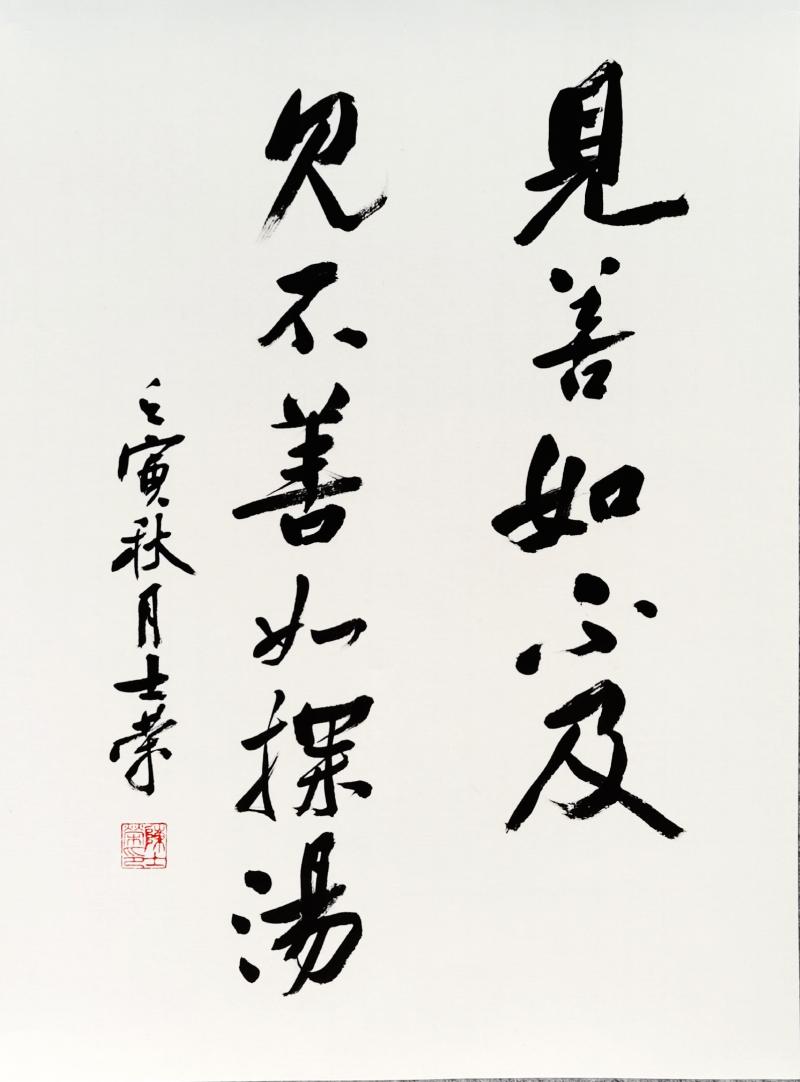 見善如不及
見不善如探湯
壬寅秋月士榮
陳士榮印